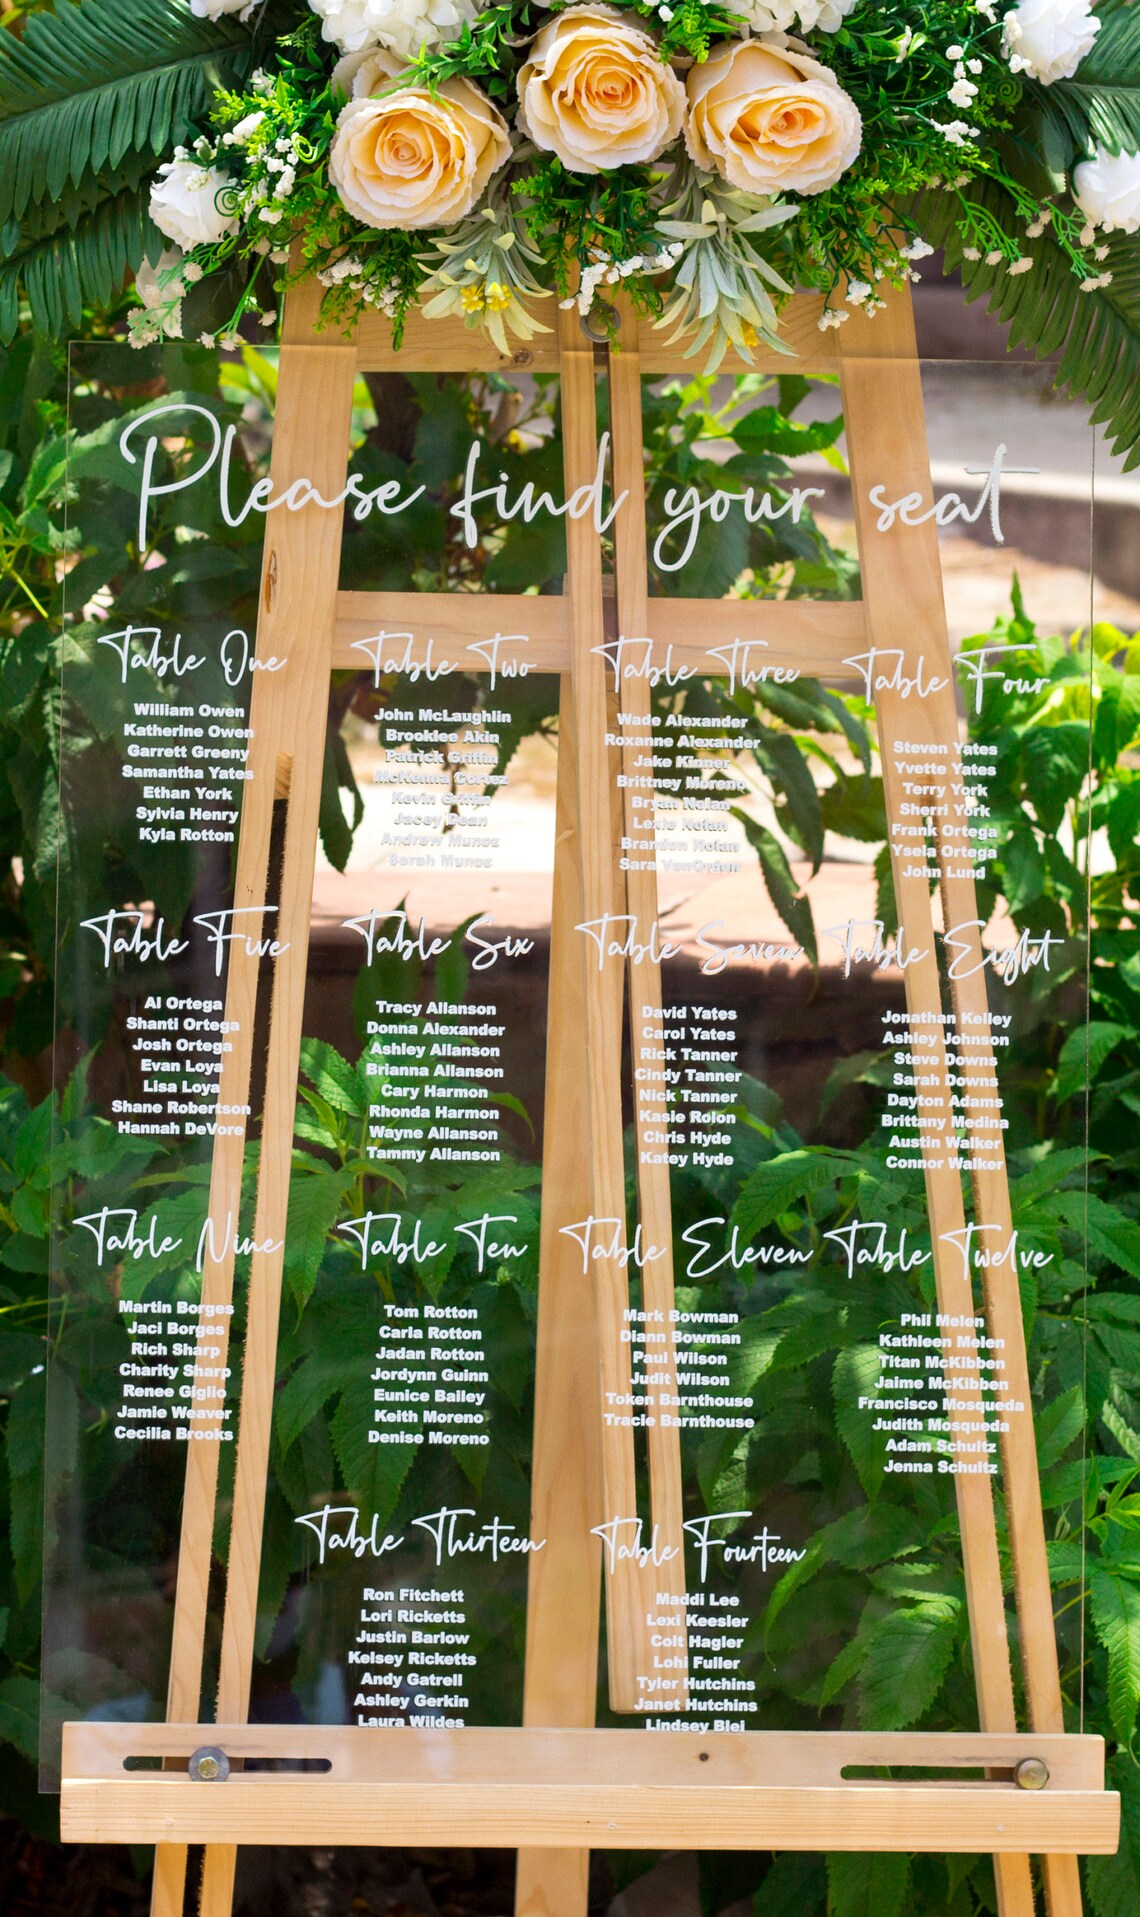 Please find your seat
Table One
William Owen
Katherine Owen
Garrett Greeny
Samantha Yates
Ethan York
Sylvia Henry
Kyla Rotton
Table Two
John McLaughlin
Brooklee Akin
Patrick Griffin
McKenna Cortez
Kevin Griffin
Jacey Dean
Andrew Munoz
Sarah Munoz
Table Three
Wade Alexander
Roxanne Alexander
Jake Kinner
Brittney Moreno
Bryan Nolan
Lexie Nolan
Branden Nolan
Sara VanOrden
Table Four
Steven Yates
Yvette Yates
Terry York
Sherri York
Frank Ortega
Ysela Ortega
John Lund
Table Five
Al Ortega
Shanti Ortega
Josh Ortega
Evan Loya
Lisa Loya
Shane Robertson
Hannah DeVore
Table Six
Tracy Allanson
Donna Alexander
Ashley Allanson
Brianna Allanson
Cary Harmon
Rhonda Harmon
Wayne Allanson
Tammy Allanson
Table Seven
David Yates
Carol Yates
Rick Tanner
Cindy Tanner
Nick Tanner
Kasie Rolon
Chris Hyde
Katey Hyde
Table Eight
Jonathan Kelley
Ashley Johnson
Steve Downs
Sarah Downs
Dayton Adams
Brittany Medina
Austin Walker
Connor Walker
Table Nine
Martin Borges
Jaci Borges
Rich Sharp
Charity Sharp
Renee Giglio
Jamie Weaver
Cecilia Brooks
Table Ten
Tom Rotton
Carla Rotton
Jadan Rotton
Jordynn Guinn
Eunice Bailey
Keith Moreno
Denise Moreno
Table Eleven
Mark Bowman
Diann Bowman
Paul Wilson
Judit Wilson
Token Barnthouse
Tracie Barnthouse
Table Twelve
Phil Melen
Kathleen Melen
Titan McKibben
Jaime McKibben
Francisco Mosqueda
Judith Mosqueda
Adam Schultz
Jenna Schultz
Table Thirteen
Ron Fitchett
Lori Ricketts
Justin Barlow
Kelsey Ricketts
Andy Gatrell
Ashley Gerkin
Laura Wildes
Table Fourteen
Maddi Lee
Lexi Keesler
Colt Hagler
Lohi Fuller
Tyler Hutchins
Janet Hutchins
Lindsey Blei